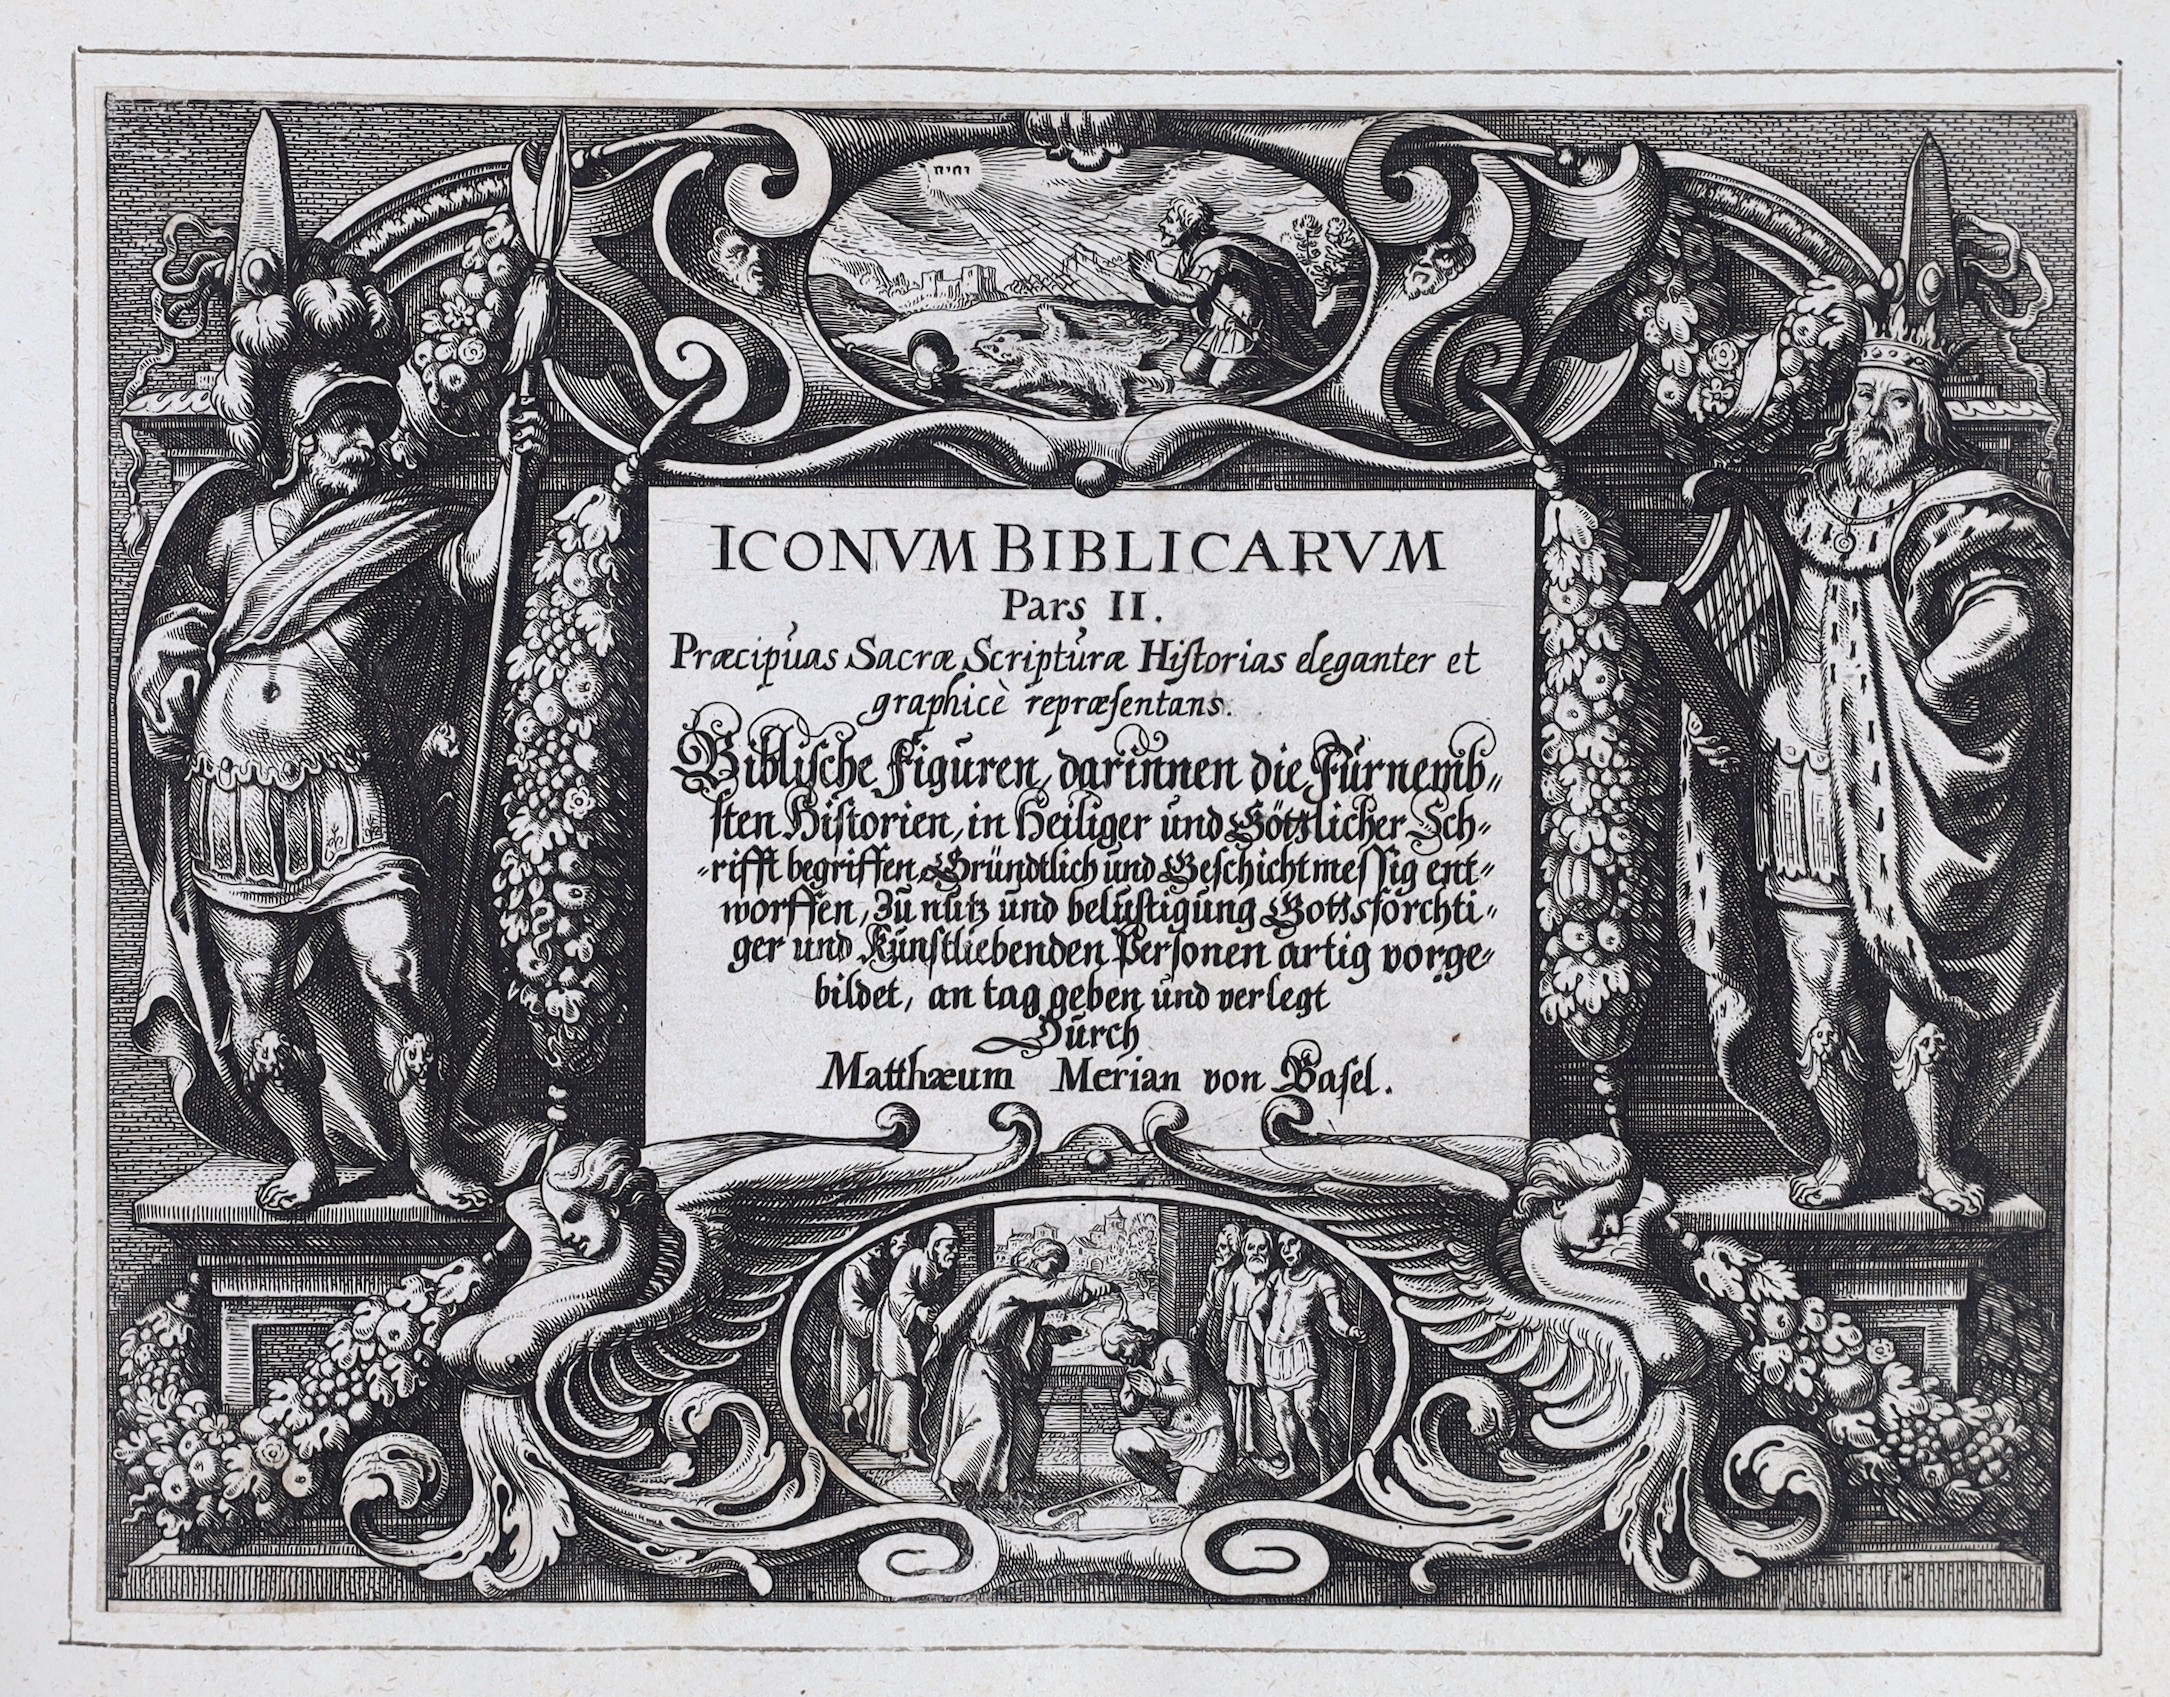 יהוה
ICONVM BIBLICARVM
Pars II.
Præcipuas Sacræ Scripturæ Hiſtorias eleganter et
graphicè repræſentans.
Bibliſche Figuren, darinnen die Fürnemb-
ſten Hiſtorien, in Heiliger und Göttlicher Sch-
-rifft begriffen, Gründtlich und Geſchichtmeſſig ent-
worffen, Zu nutz und beluſtigung Gottsförchti-
ger und Kunſtliebenden Perſonen artig vorge-
bildet, an tag geben und verlegt
Durch
Matthæum Merian von Baſel.